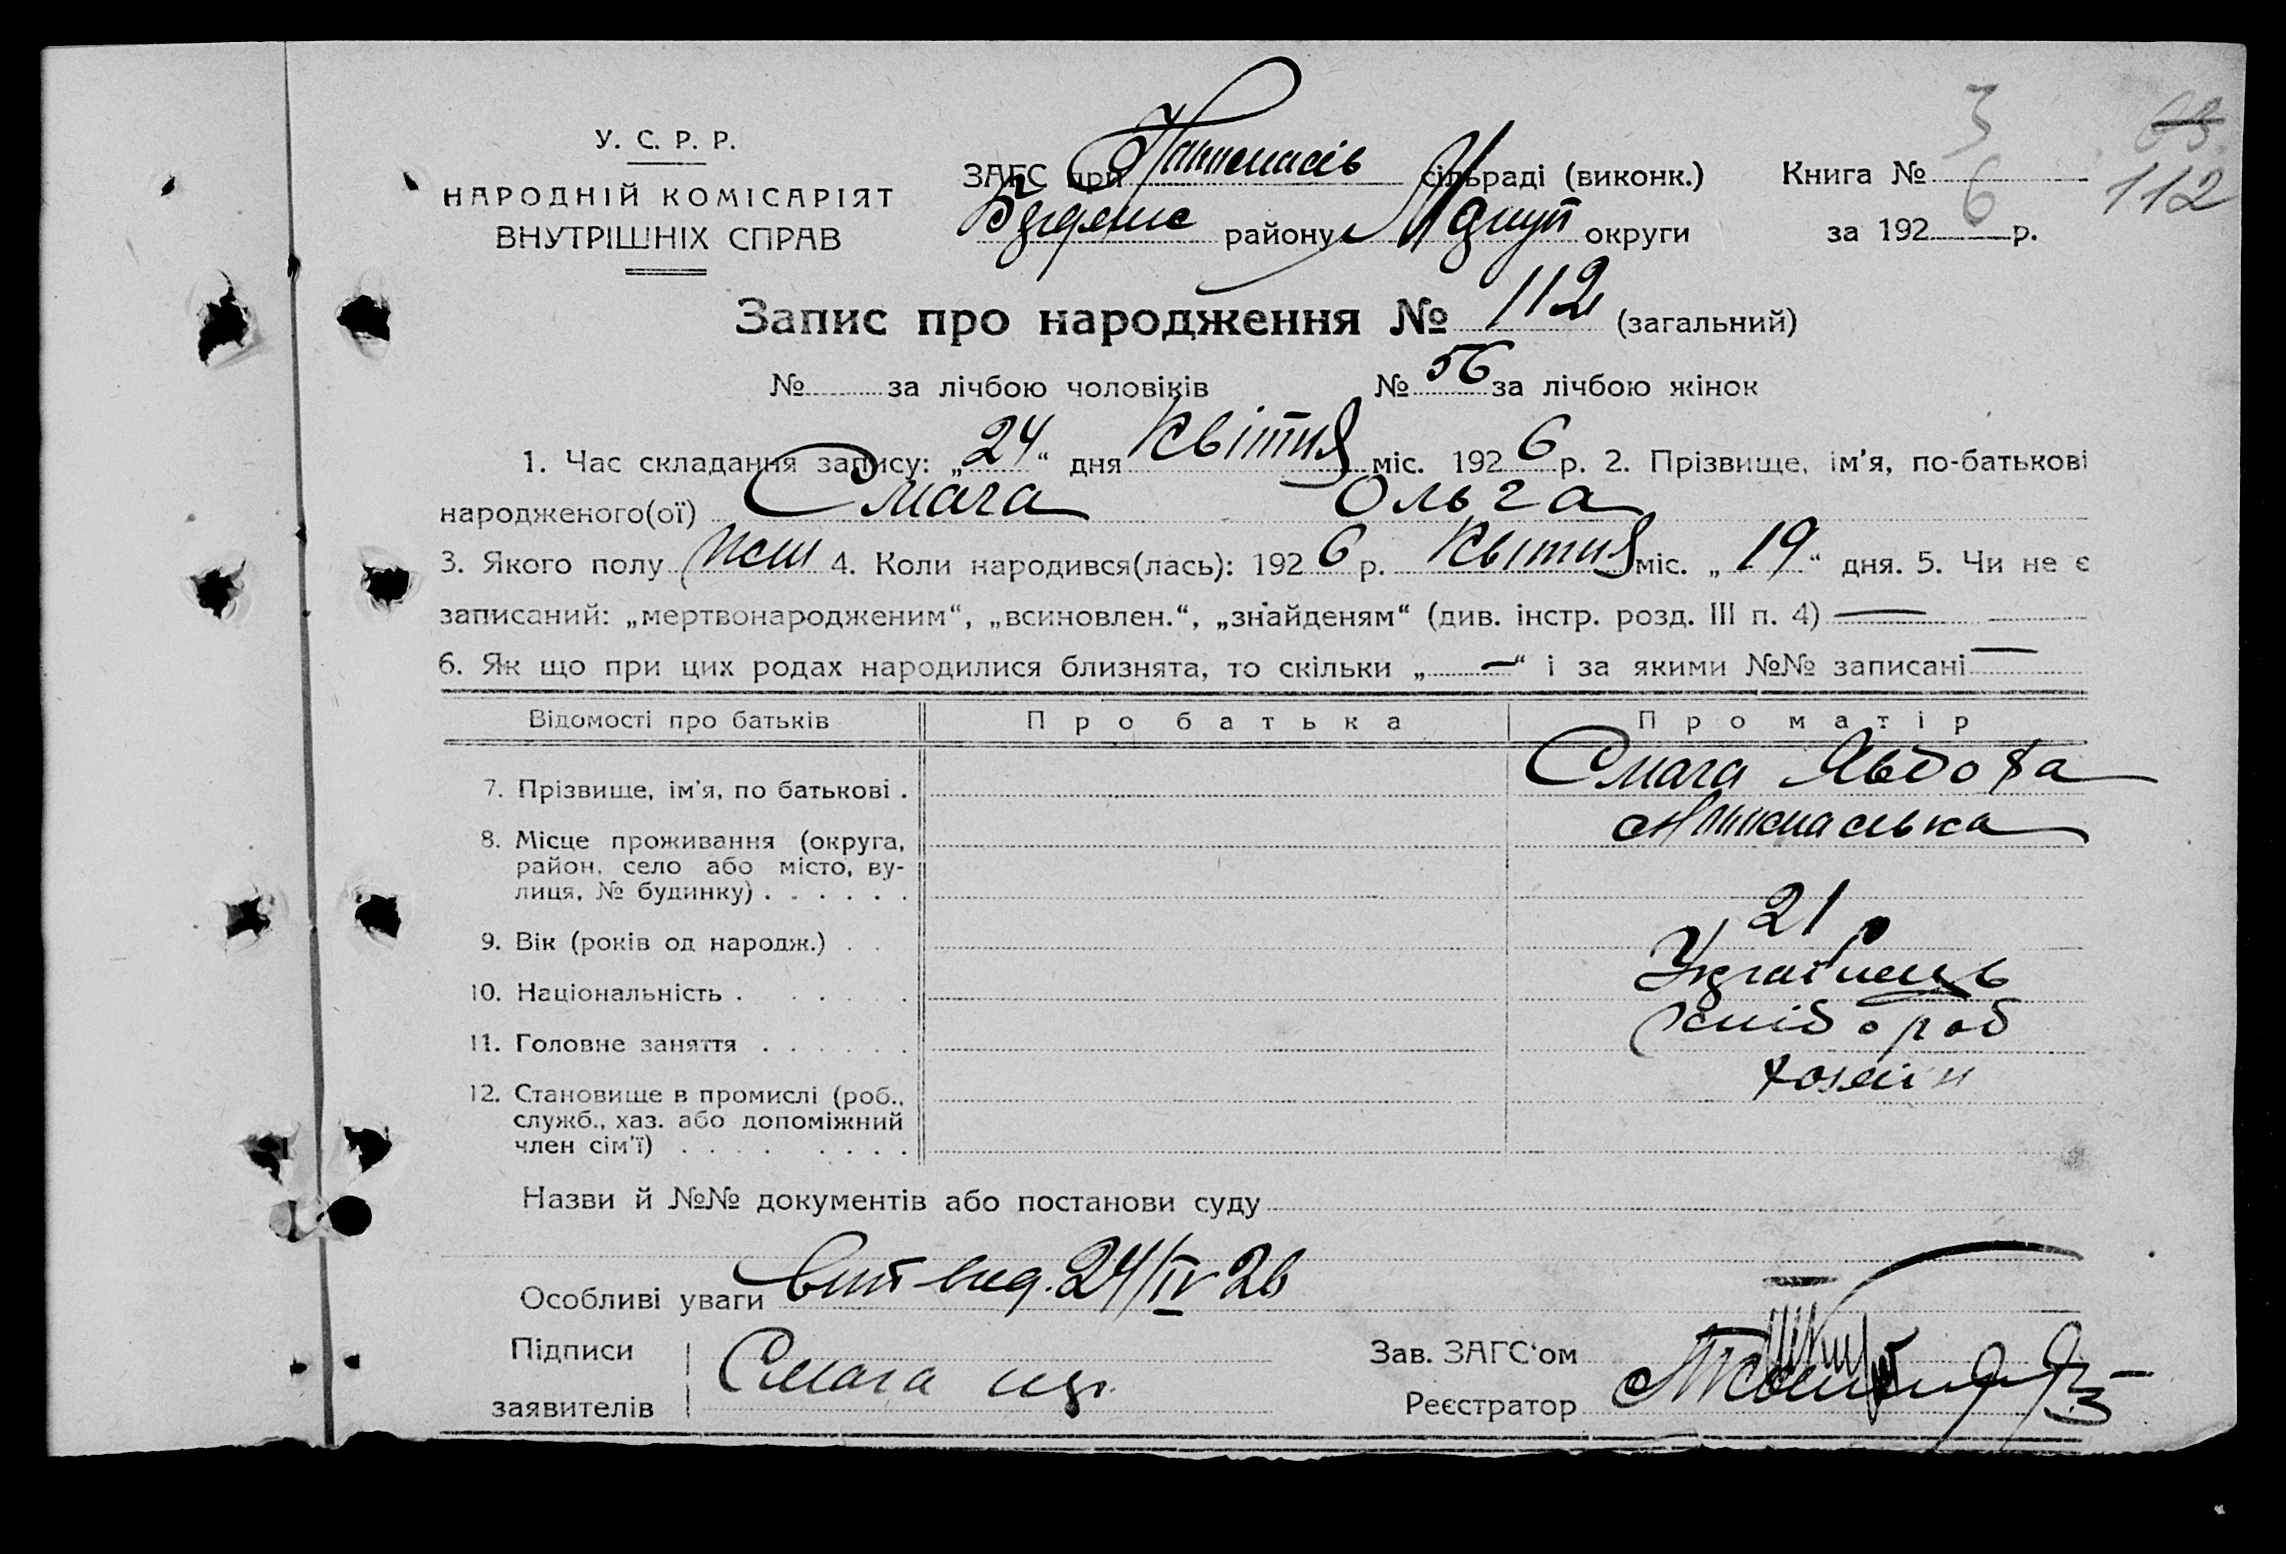 У. С. Р. Р.
НАРОДНІЙ КОМІСАРІЯТ
ВНУТРІШНІХ СПРАВ
ЗАГС при сільраді (виконк.)
району округи
Книга № 3
за 1926 р.
63
112
Запис про народження № 112 (загальний)
№ за лічбою чоловіків № 56 за лічбою жінок
1. Час складання запису: „24“ дня Квітня міс. 1926 р. 2. Прізвище, ім'я, по-батькові
народженого(ої) Смага Ольга
3. Якого полу жін 4. Коли народився(лась): 1926 р. Квітня міс. „19“ дня. 5. Чи не є
записаний: „мертвонародженим“, „всиновлен.“, „знайденям“ (див. інстр. розд. III п. 4) —
6. Як що при цих родах народилися близнята, то скільки „—“ і за якими №№ записані —
Відомості про батьків Про батька Про матір
7. Прізвище, ім'я, по батькові . Смага Явдоха
8. Місце проживання (округа,
район, село або місто, ву-
лиця, № будинку) . . . . . .
9. Вік (років од народж.) . . 21
10. Національність . . . . . Українець
11. Головне заняття . . . . . . хлібороб
12. Становище в промислі (роб.,
служб., хаз. або допоміжний
член сім'ї) . . . . . . . . хозяїн
Назви й №№ документів або постанови суду
Особливі уваги 24/IV 26
Підписи
заявителів Смага
Зав. ЗАГС'ом
Реєстратор